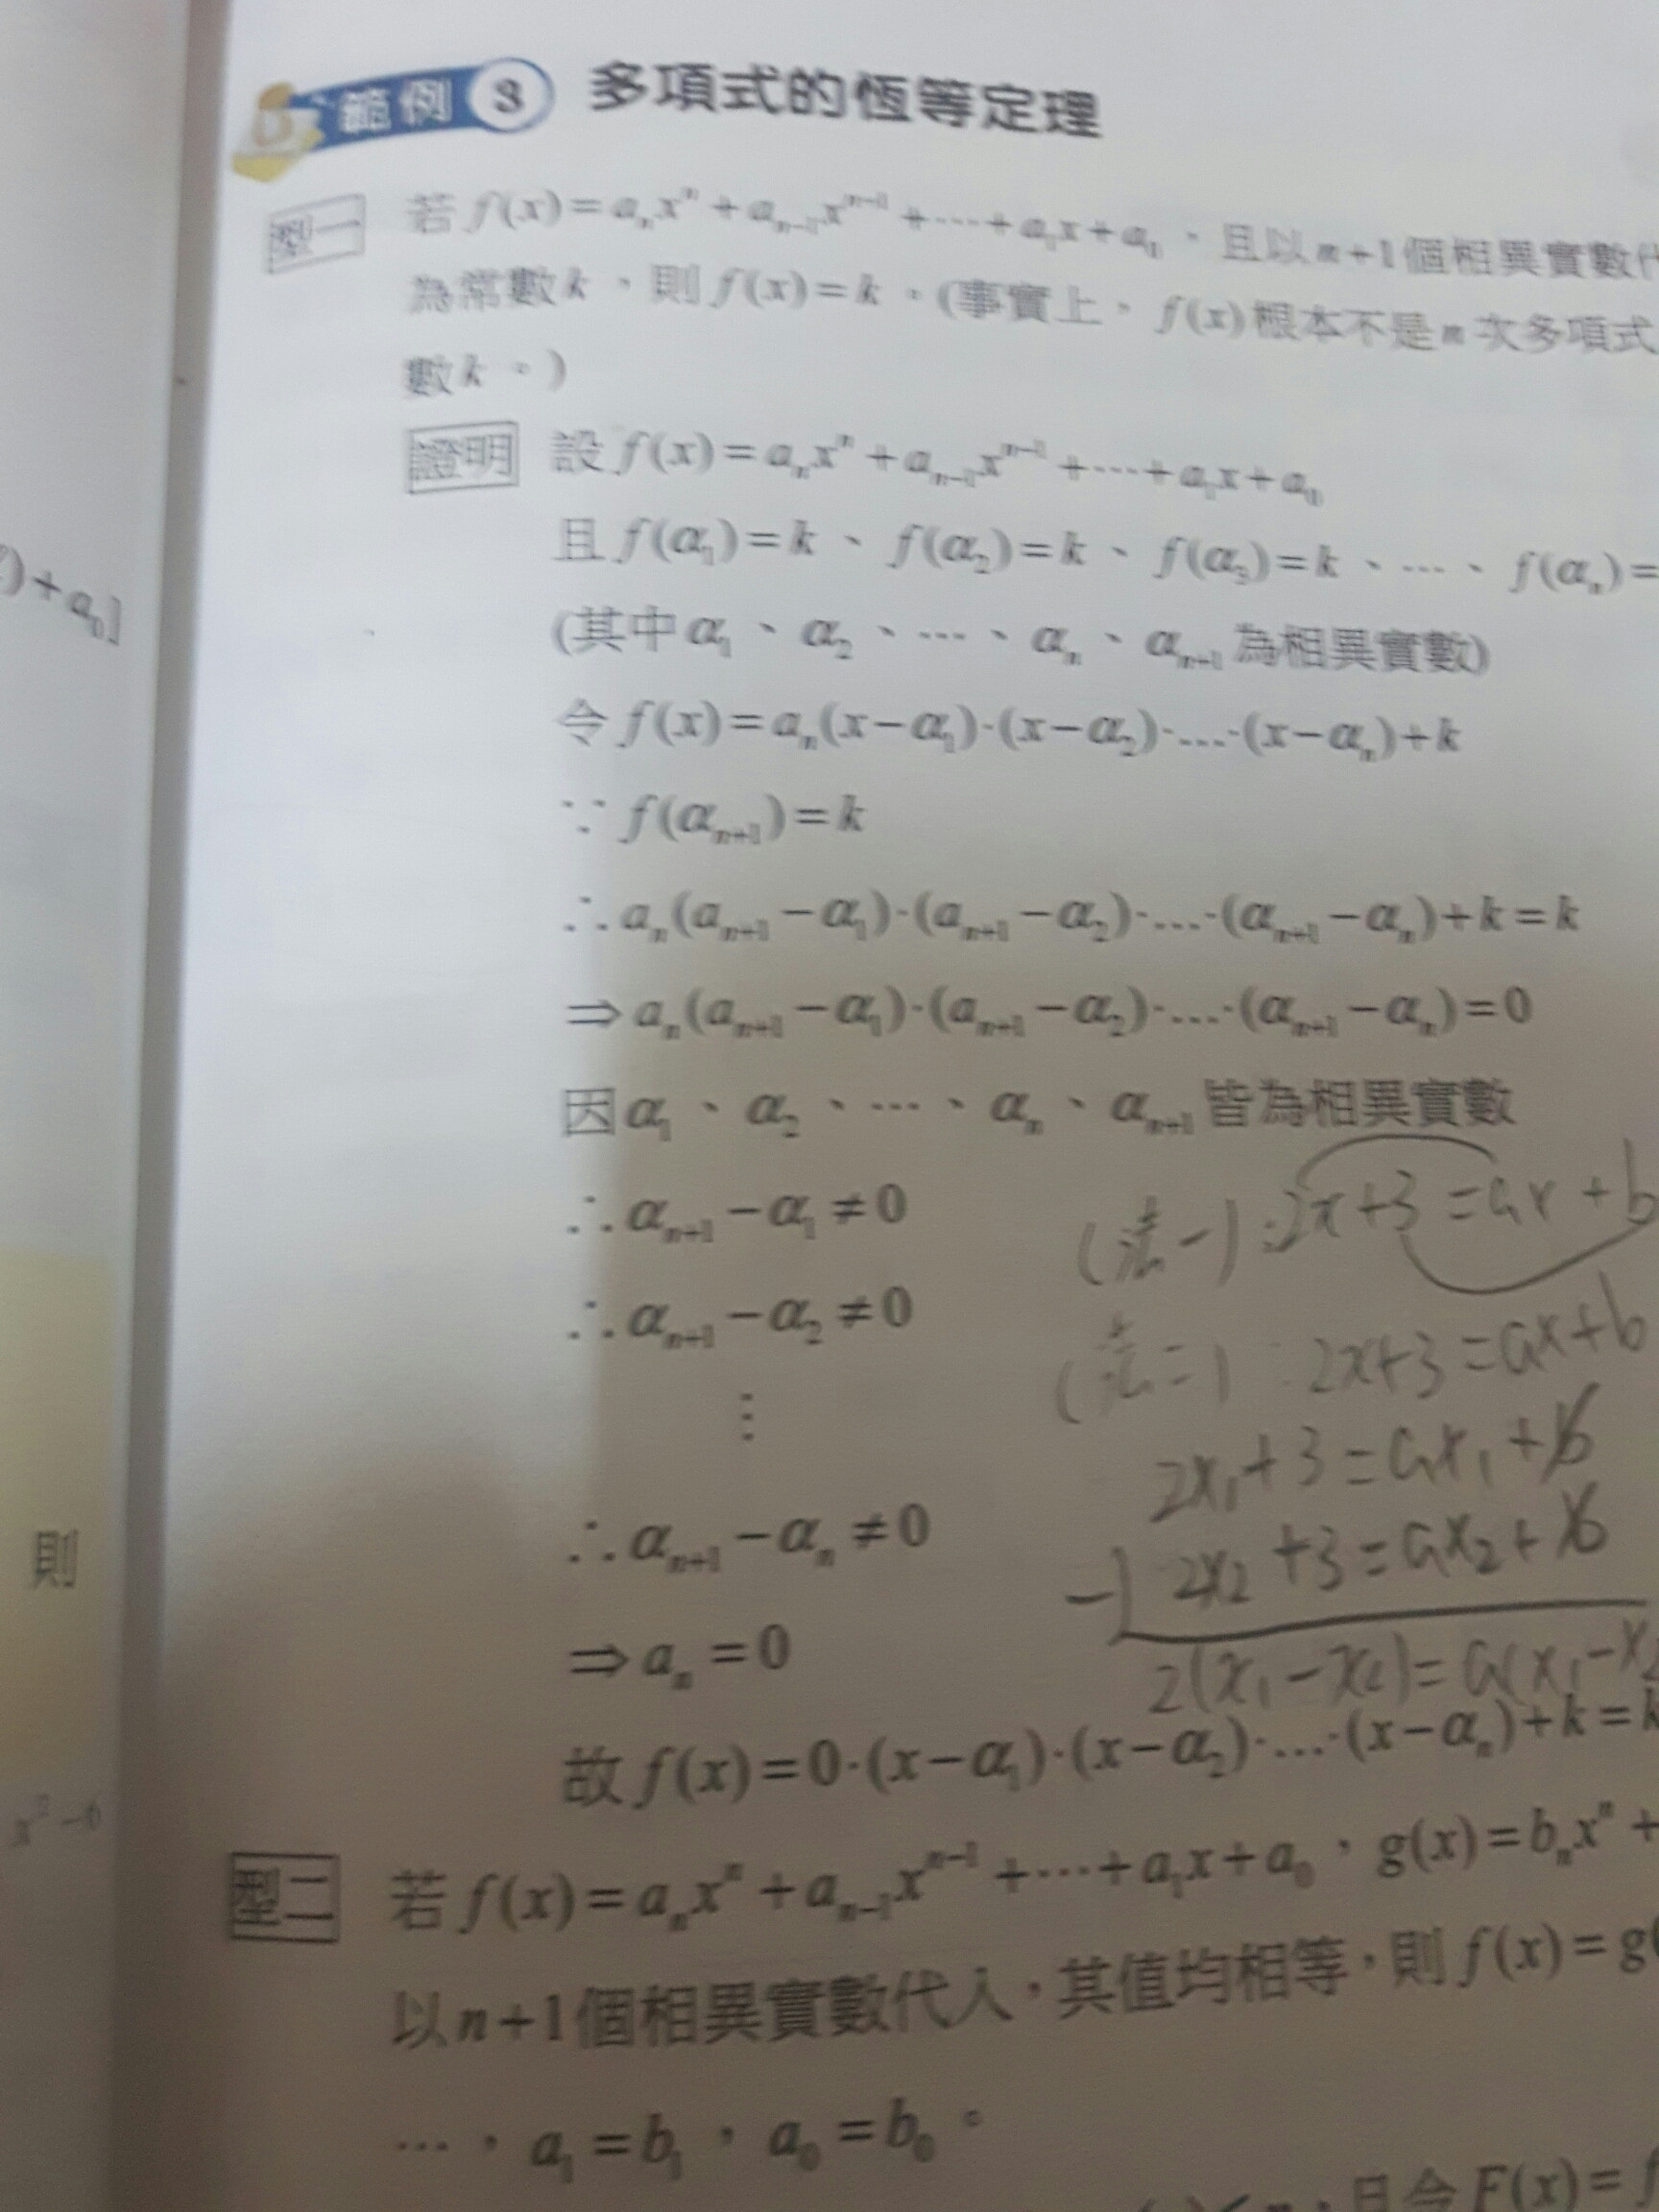 )+a₀]
則
x²-6
範例 3 多項式的恆等定理
型一 若f(x)=aₙxⁿ+aₙ₋₁xⁿ⁻¹+⋯+a₁x+a₀，且以n+1個相異實數代
為常數k，則f(x)=k。(事實上，f(x)根本不是n次多項式
數k。)
證明 設f(x)=aₙxⁿ+aₙ₋₁xⁿ⁻¹+⋯+a₁x+a₀
且f(α₁)=k、f(α₂)=k、f(α₃)=k、⋯、f(αₙ)=
(其中α₁、α₂、⋯、αₙ、αₙ₊₁為相異實數)
令f(x)=aₙ(x-α₁)·(x-α₂)·…·(x-αₙ)+k
∵f(αₙ₊₁)=k
∴aₙ(aₙ₊₁-α₁)·(aₙ₊₁-α₂)·…·(αₙ₊₁-αₙ)+k=k
⇒aₙ(aₙ₊₁-α₁)·(aₙ₊₁-α₂)·…·(αₙ₊₁-αₙ)=0
因α₁、α₂、⋯、αₙ、αₙ₊₁皆為相異實數
∴αₙ₊₁-α₁≠0
(法一):2x+3=ax+b
∴αₙ₊₁-α₂≠0
(法二):2x+3=ax+b
⋮
2x₁+3=ax₁+b
∴αₙ₊₁-αₙ≠0
-) 2x₂+3=ax₂+b
⇒aₙ=0
2(x₁-x₂)=a(x₁-x₂
故f(x)=0·(x-α₁)·(x-α₂)·…·(x-αₙ)+k=k
型二 若f(x)=aₙxⁿ+aₙ₋₁xⁿ⁻¹+⋯+a₁x+a₀，g(x)=bₙxⁿ+
以n+1個相異實數代入，其值均相等，則f(x)=g(
⋯，a₁=b₁，a₀=b₀。
且令F(x)=f